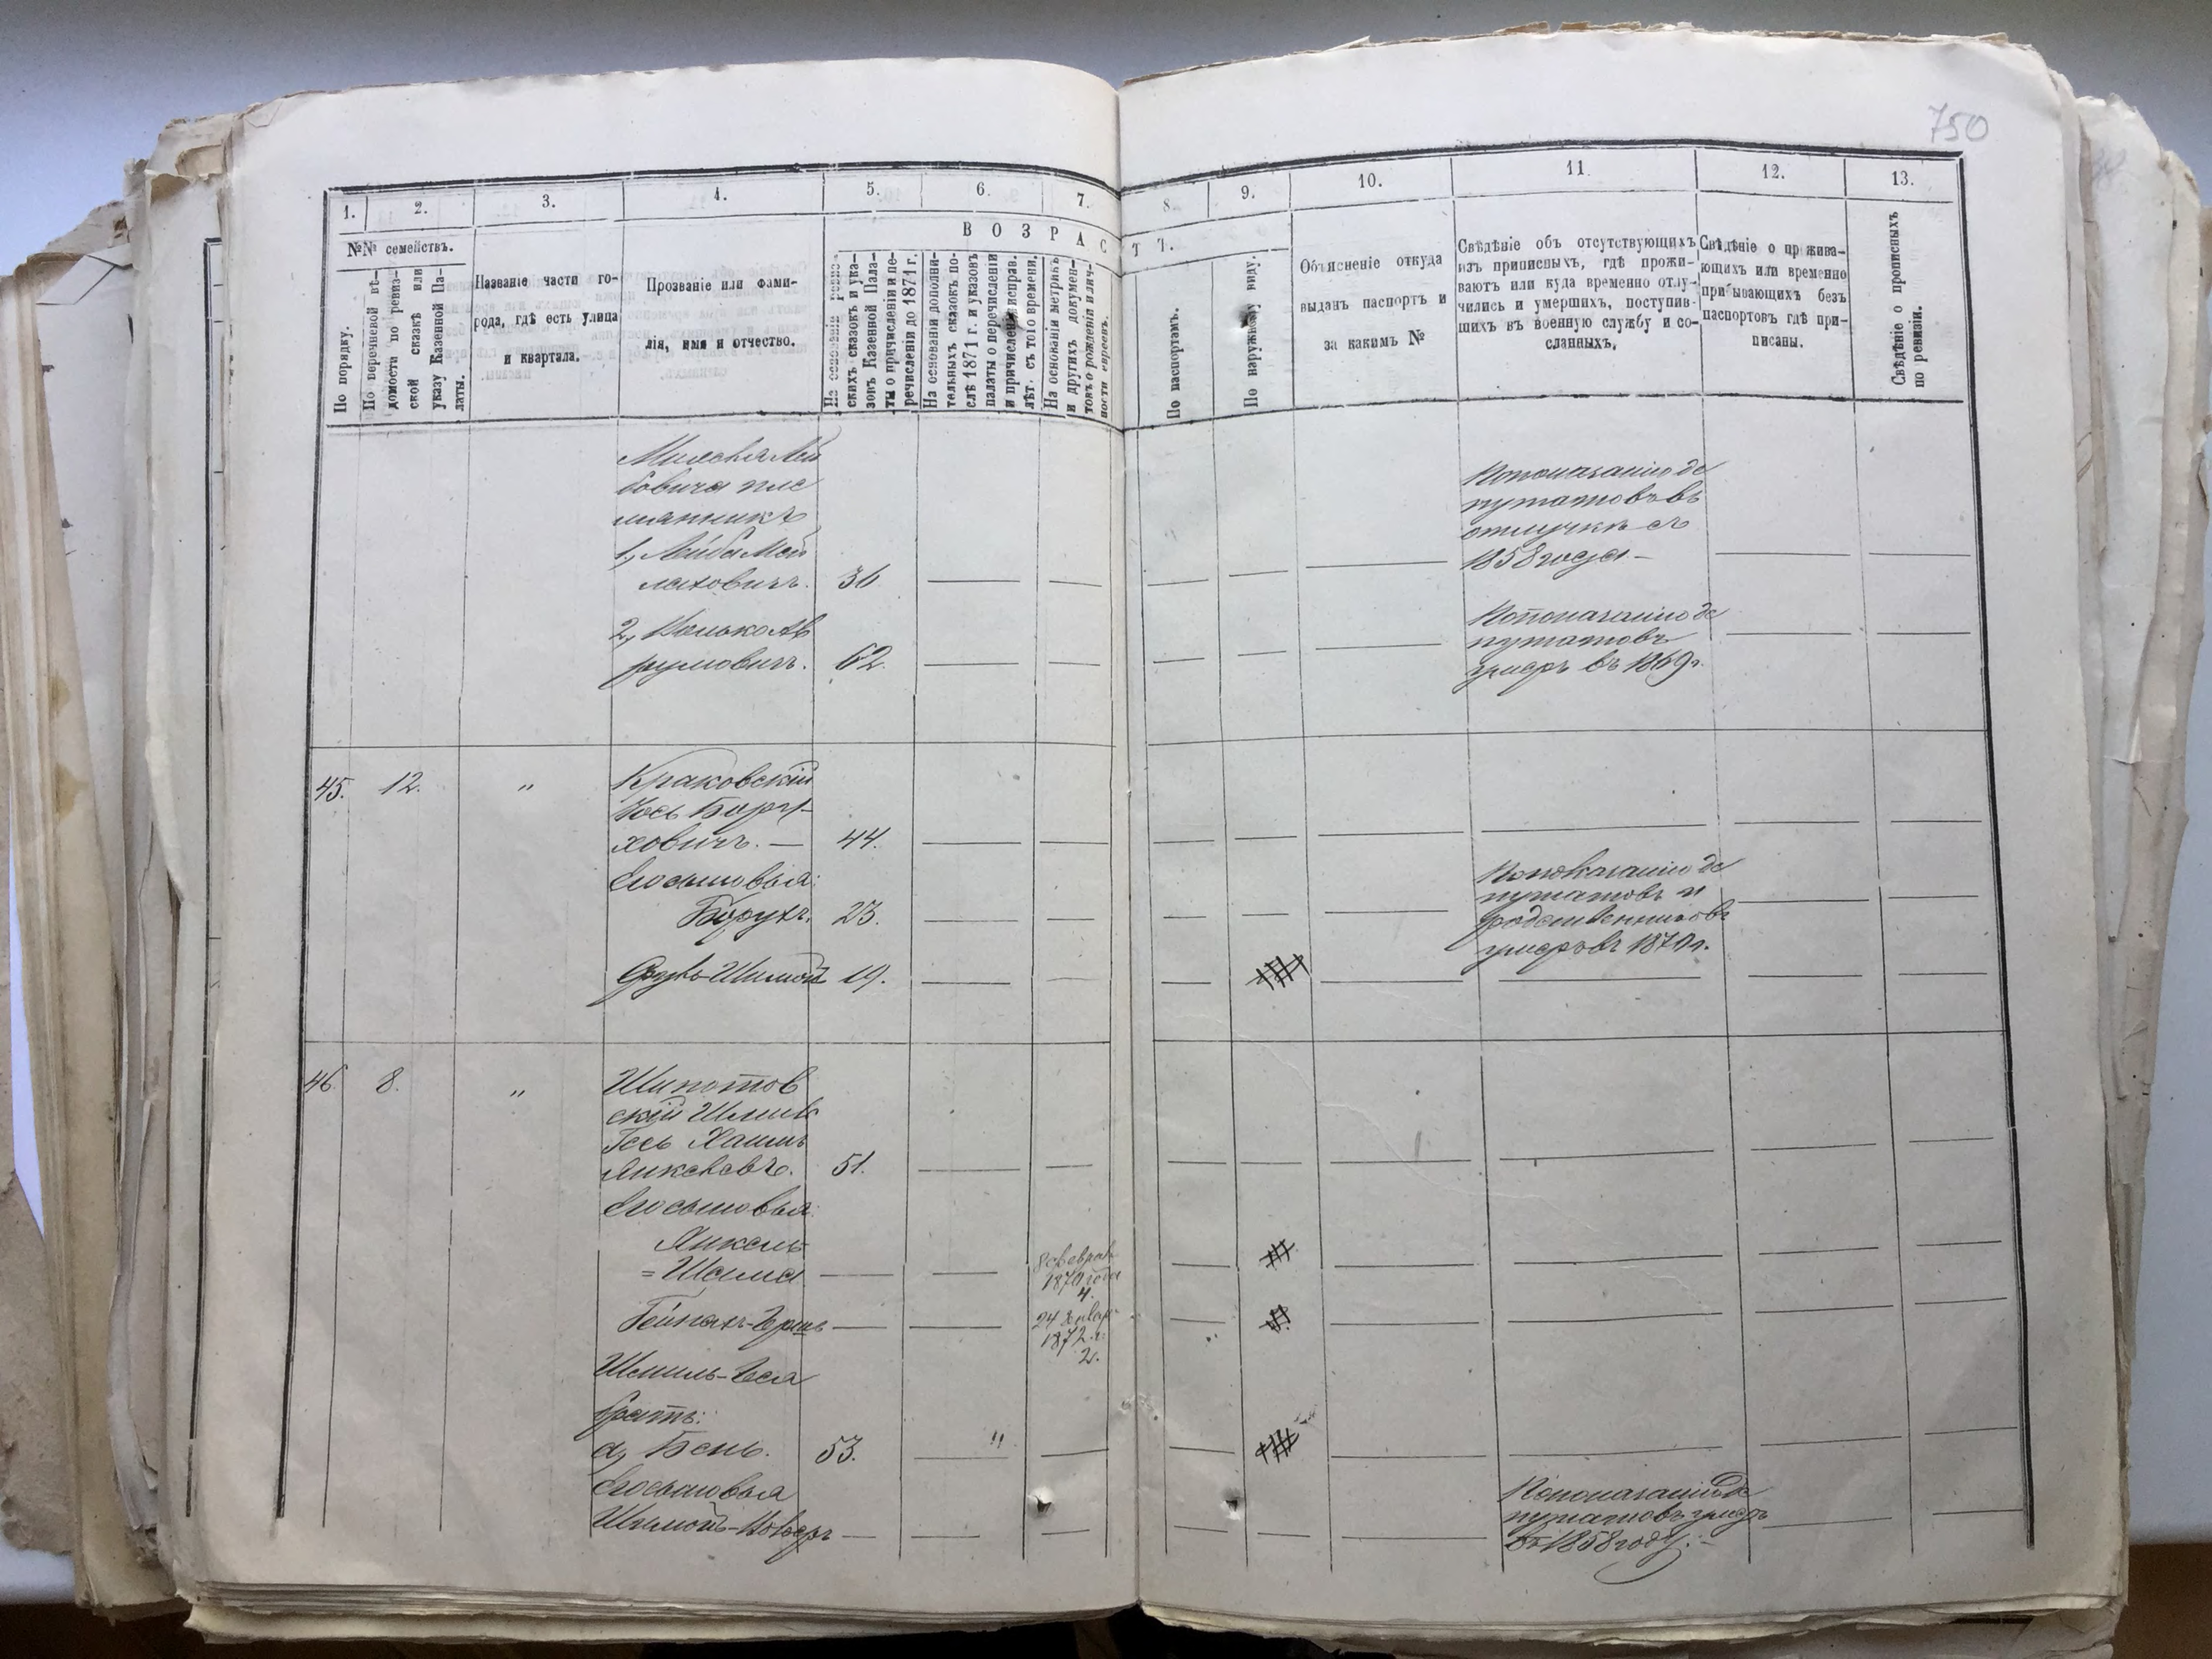 750
1.
2.
3.
4.
5.
6.
7.
8.
9.
10.
11.
12.
13.
№№ семействъ.
По порядку.
По перечневой вѣ-
домости по ревиз-
ской сказкѣ или
указу Казенной Па-
латы.
Названіе части го-
рода, гдѣ есть улица
и квартала.
Прозваніе или фами-
лія, имя и отчество.
ВОЗРАСТЪ.
На основаніи ревиз-
скихъ сказокъ и ука-
зовъ Казенной Пала-
ты о причисленіи и пе-
речисленіи до 1871 г.
На основаніи дополни-
тельныхъ сказокъ по-
слѣ 1871 г. и указовъ
палаты о перечисленіи
и причисленіи исправ.
лѣт. съ того времени.
На основаніи метрикъ
и другихъ докумен-
товъ о рожденіи и лич-
ности евреевъ.
По паспортамъ.
По наружному виду.
Объясненіе откуда
выданъ паспортъ и
за какимъ №
Свѣдѣніе объ отсутствующихъ
изъ приписныхъ, гдѣ прожи-
ваютъ или куда временно отлу-
чились и умершихъ, поступив-
шихъ въ военную службу и со-
сланныхъ.
Свѣдѣніе о прожива-
ющихъ или временно
прибывающихъ безъ
паспортовъ гдѣ при-
писаны.
Свѣдѣніе о прописныхъ
по ревизіи.
бовича пле
мянникъ
1, Лейба Мей
лаховичъ. 36
По показанію де
путатовъ въ
отлучкѣ съ
1858 года. —
2, Волько Ав
румовичъ. 62.
По показанію де
путатовъ
умеръ въ 1869 г.
45. 12. "
Краковскій
Іось Бору-
ховичъ. — 44.
Его сыновья:
Борухъ. 23.
По показанію де
путатовъ и
родственниковъ
умеръ въ 1870 г.
Шимон 19.
46. 8. "
Шипотов
скій Шмиль
Іось Хаимъ
Янкелевъ. 51.
Его сыновья:
Янкель
=Шама
8 Февраль
1870 года
4.
Гейнахъ-Гершь
24 Январ
1872 г.
2.
Шмиль-Іося
братъ:
а, Бень. 53. "
Его сыновья
По показанію де
путатовъ умеръ
въ 1858 году. —